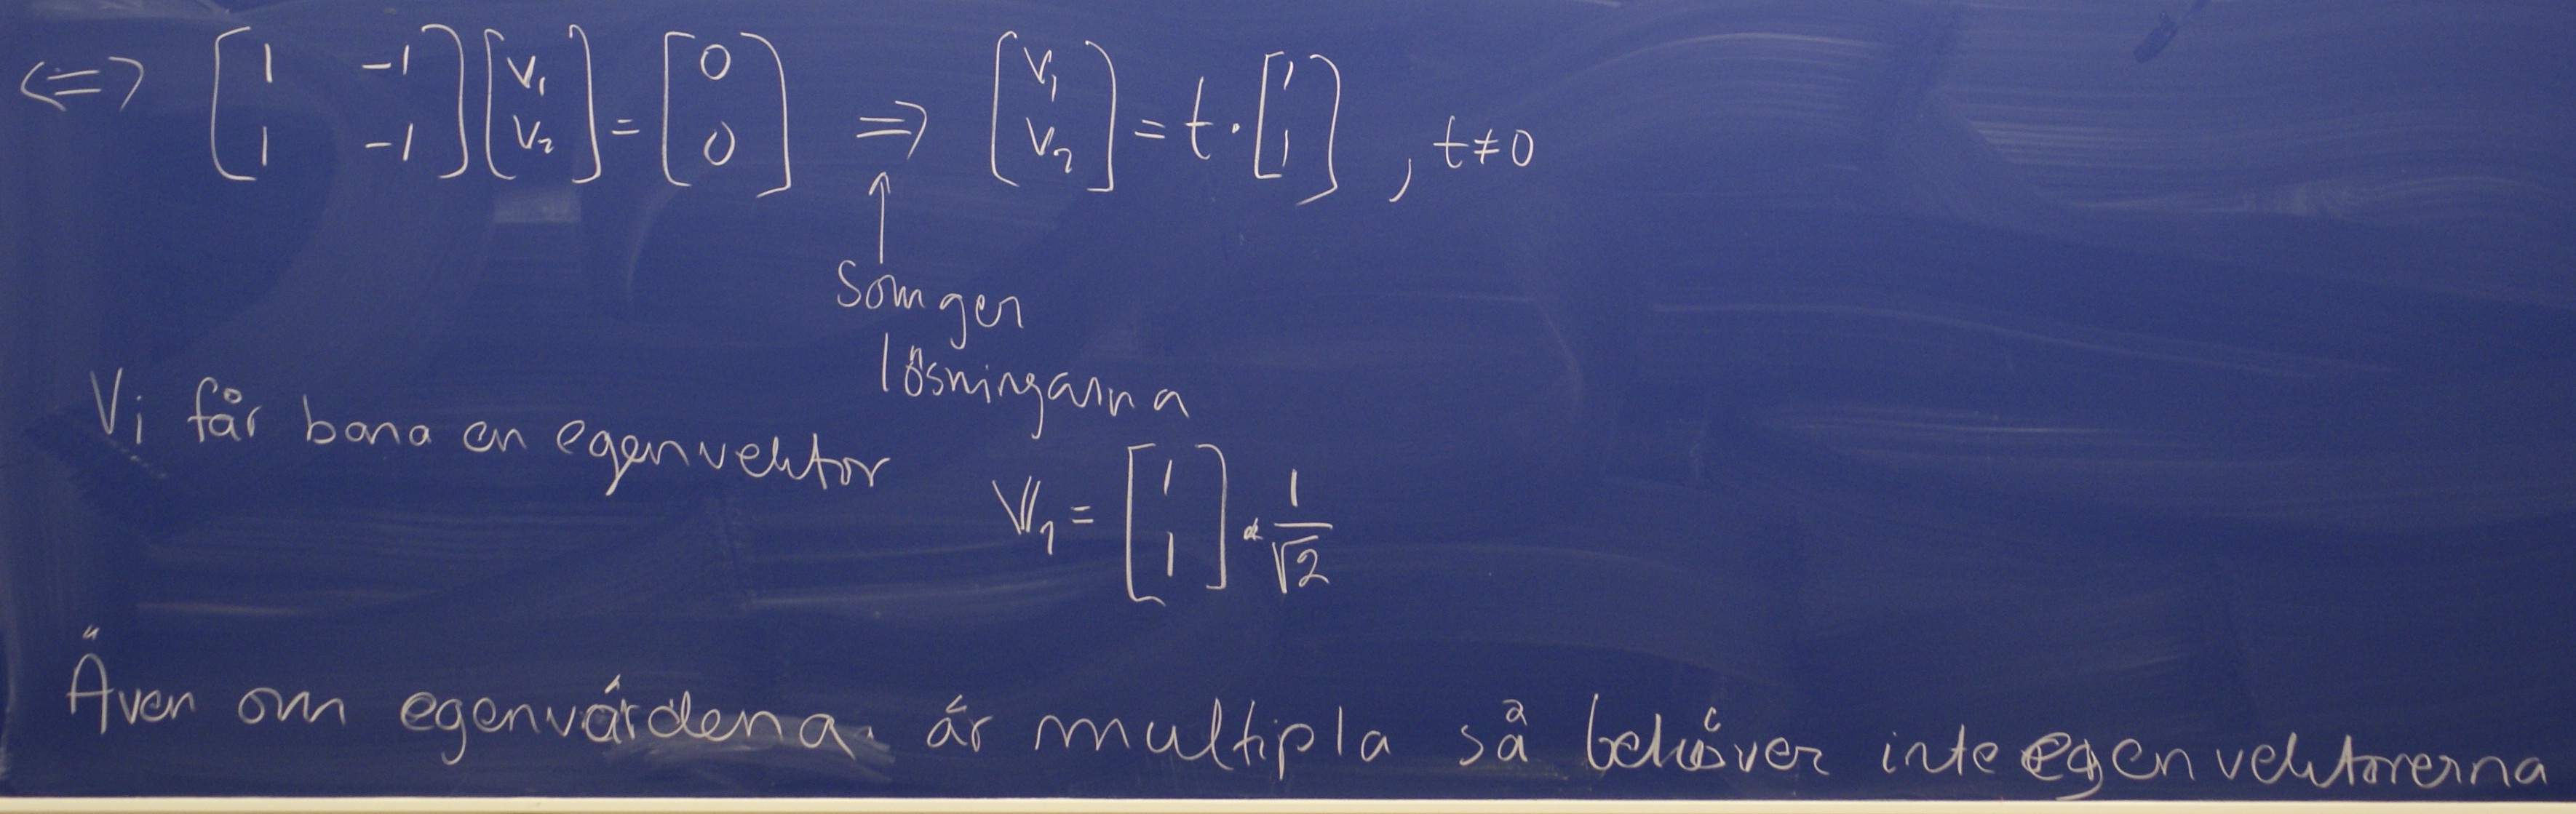 <=> [1 -1; 1 -1] [v₁; v₂] = [0; 0] => [v₁; v₂] = t · [1; 1] , t ≠ 0
↑
Som ger
lösningarna
Vi får bara en egenvektor
V₁ = [1; 1] · 1/√2
Även om egenvärdena är multipla så behöver inte egenvektorerna